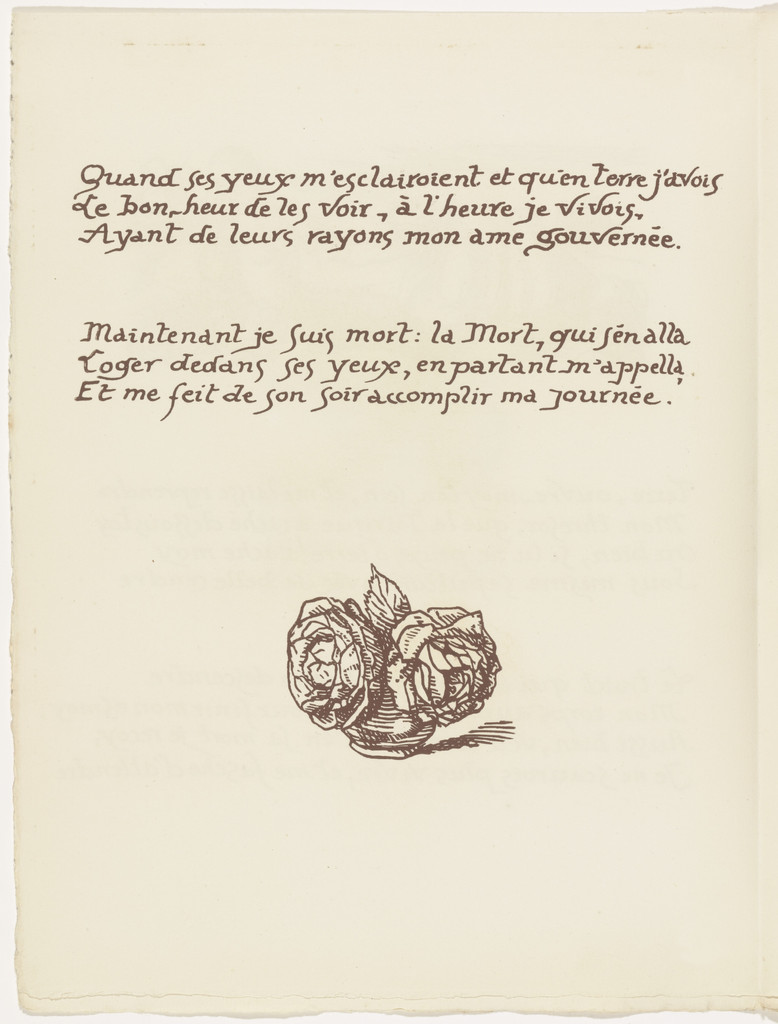 Quand ses yeux m'esclairoient et qu'en terre j'avois
Le bon-heur de les voir, à l'heure je vivois,
Ayant de leurs rayons mon àme gouvernée.
Maintenant je suis mort: la Mort, qui s'en alla
Loger dedans ses yeux, en partant m'appella,
Et me feit de son soir accomplir ma journée.